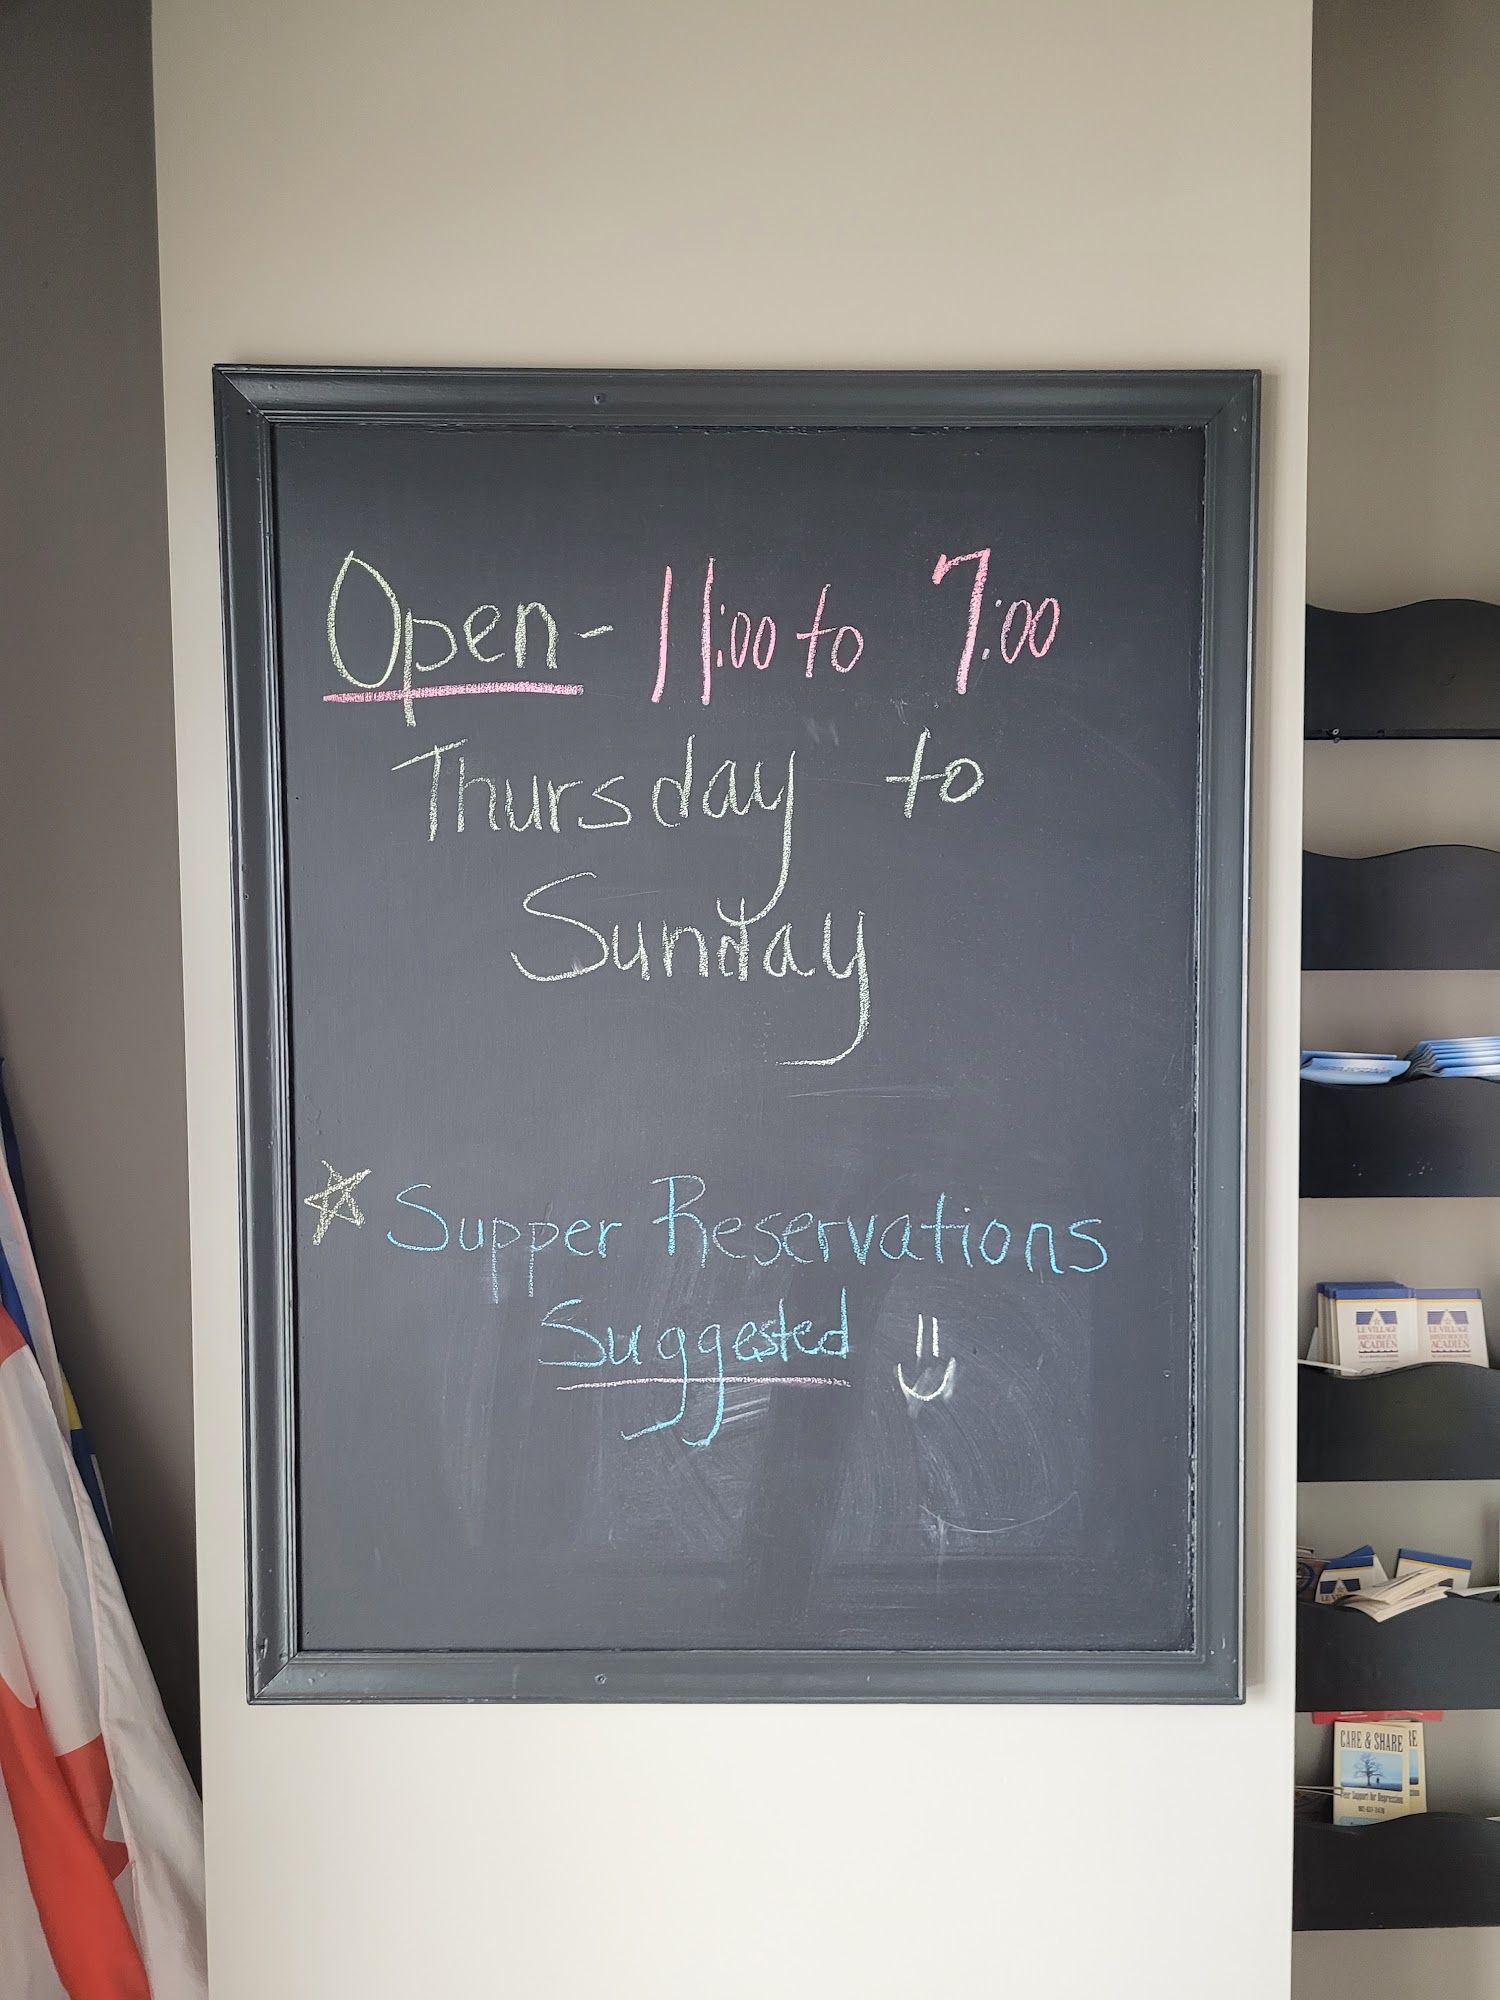 Open - 11:00 to 7:00
Thursday to
Sunday
Supper Reservations
Suggested
LE VILLAGE
HISTORIQUE
ACADIEN
LE VILLAGE
HISTORIQUE
ACADIEN
CARE & SHARE
Peer Support for Depression